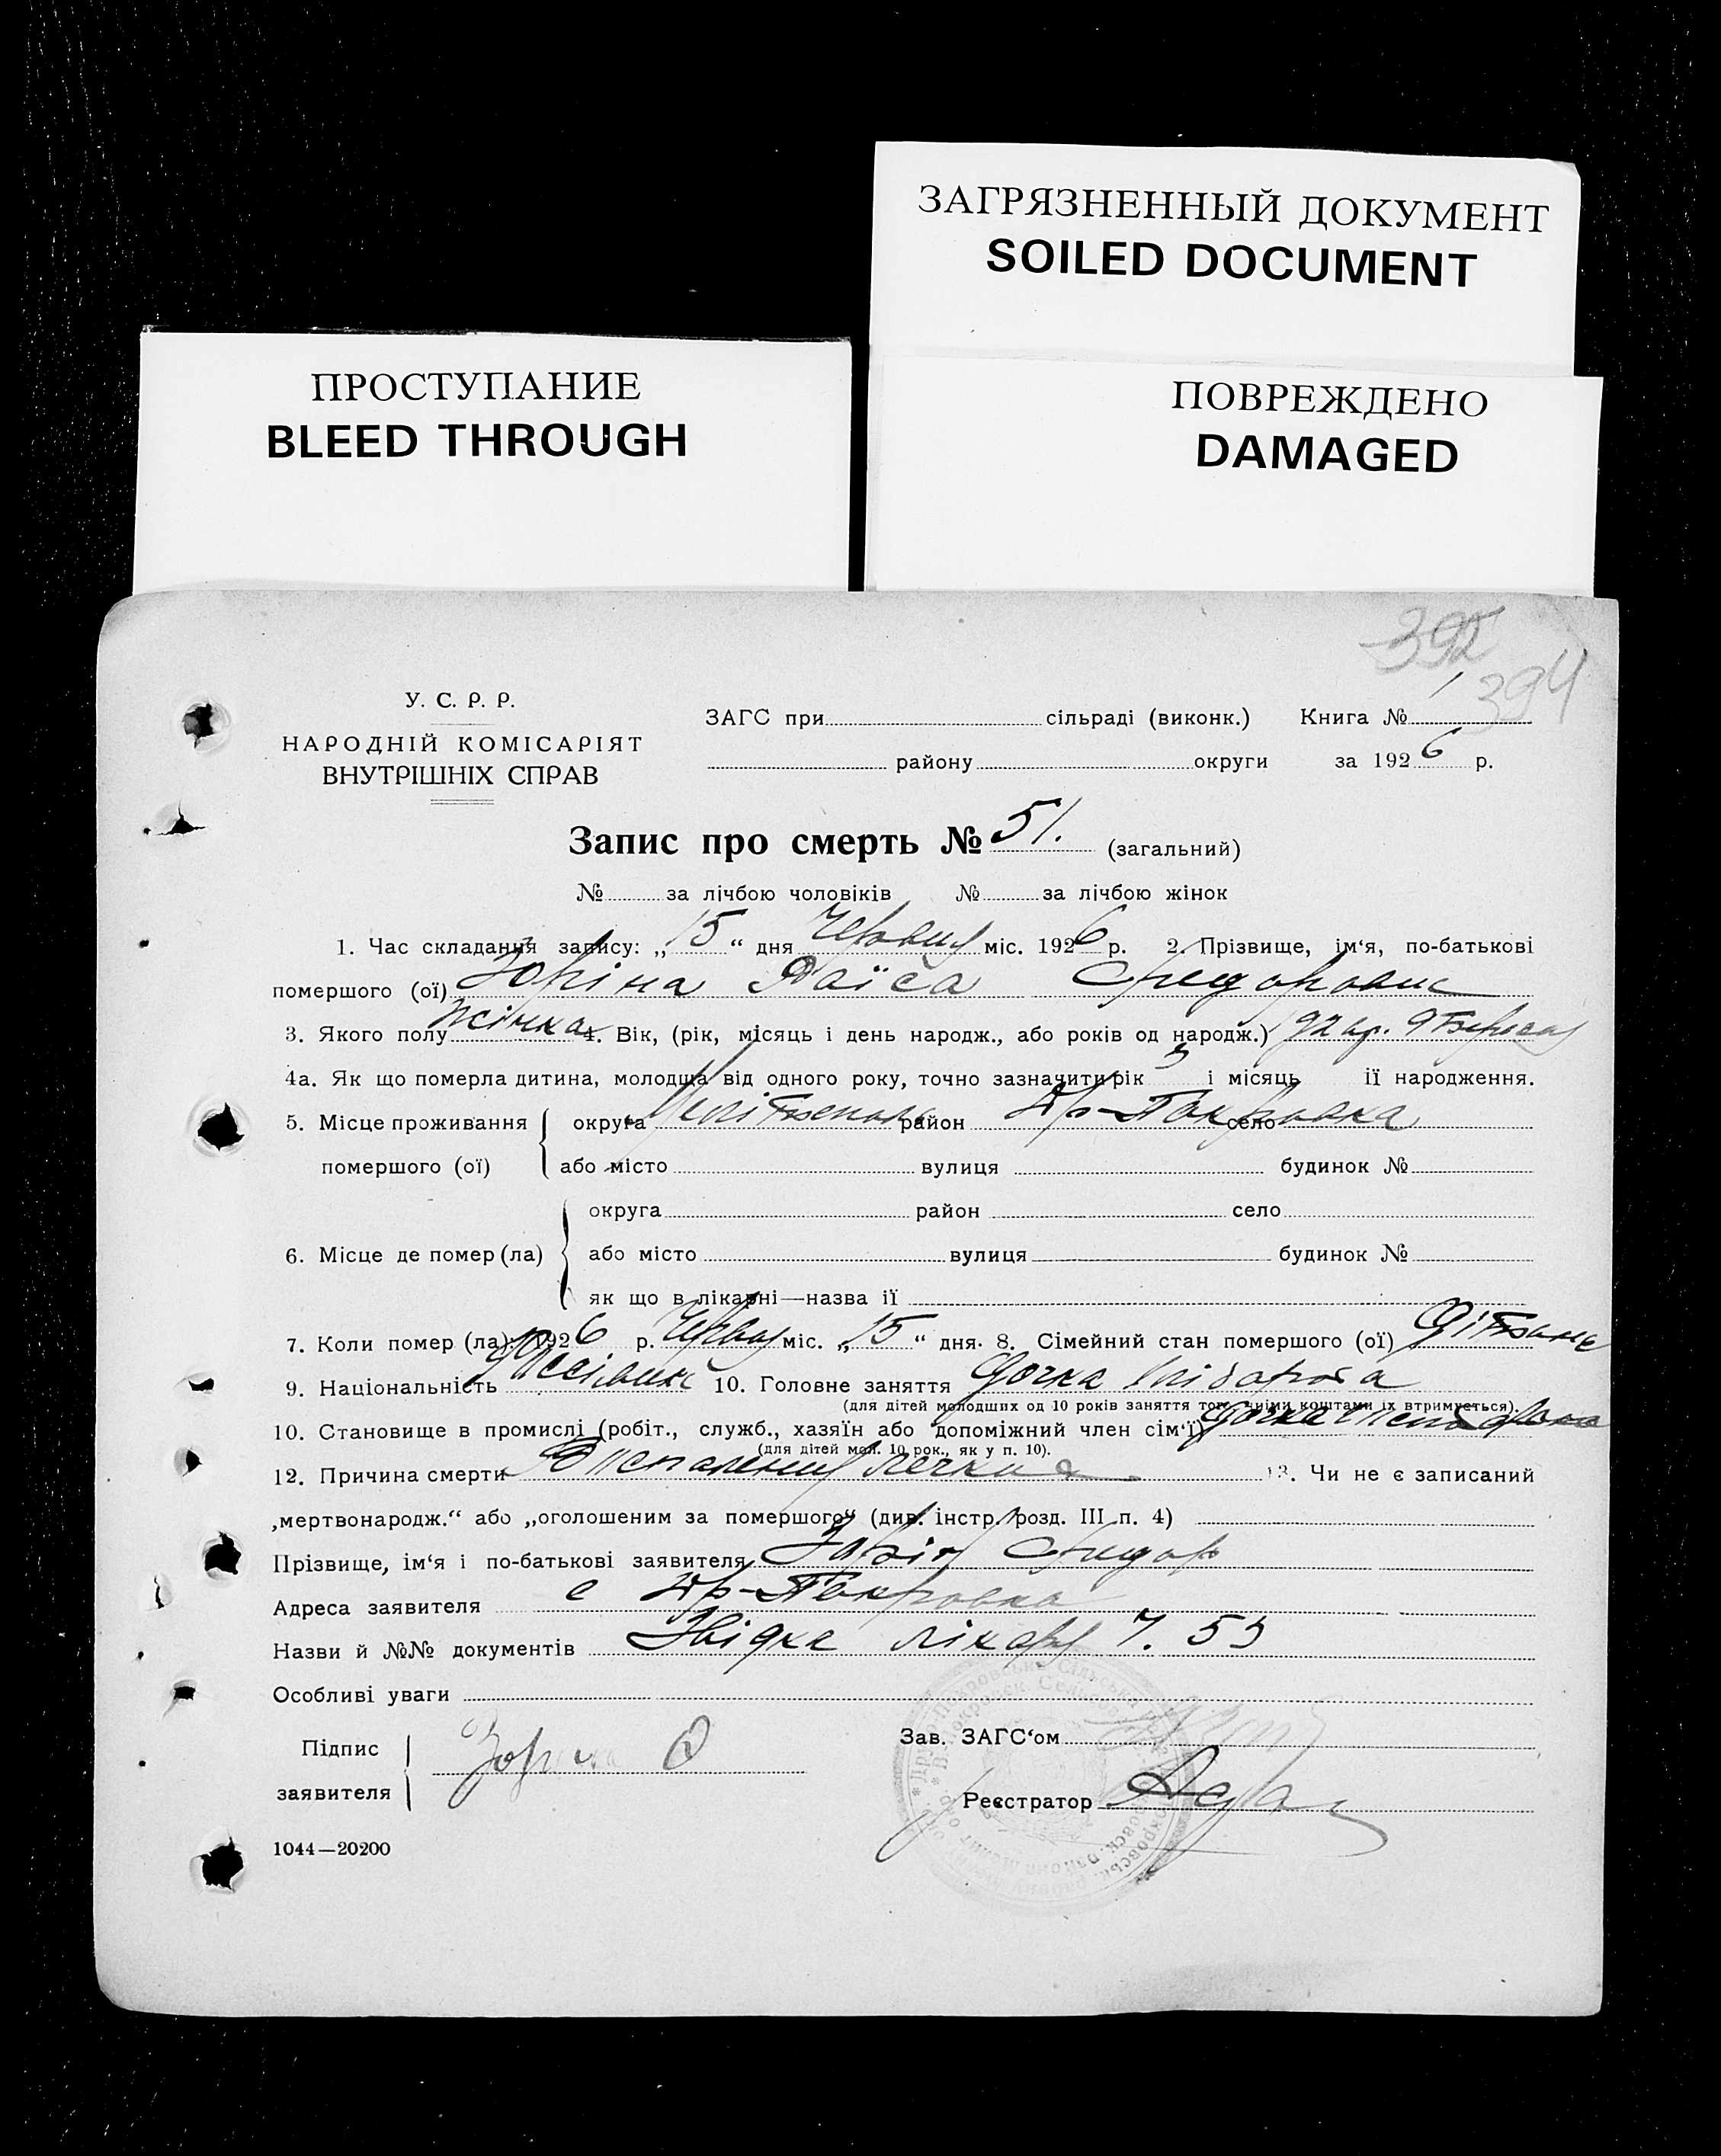 ЗАГРЯЗНЕННЫЙ ДОКУМЕНТ
SOILED DOCUMENT
ПРОСТУПАНИЕ
BLEED THROUGH
ПОВРЕЖДЕНО
DAMAGED
392
394
У. С. Р. Р.
НАРОДНІЙ КОМІСАРІЯТ
ВНУТРІШНІХ СПРАВ
ЗАГС при сільраді (виконк.) Книга № 1
району округи за 1926 р.
Запис про смерть № 51. (загальний)
№ за лічбою чоловіків № за лічбою жінок
1. Час складання запису: „15“ дня міс. 1926 р. 2. Прізвище, ім‘я, по-батькові
помершого (ої) Зоріна Раїса
3. Якого полу жінка 4. Вік, (рік, місяць і день народж., або років од народж.)
4а. Як що померла дитина, молодща від одного року, точно зазначити рік і місяць ії народження.
5. Місце проживання помершого (ої) округа район село Др-Покровка
або місто вулиця будинок №
6. Місце де помер (ла) округа район село
або місто вулиця будинок №
як що в лікарні—назва ії
7. Коли помер (ла): 1926 р. міс. „15“ дня. 8. Сімейний стан помершого (ої)
9. Національність 10. Головне заняття дочка
(для дітей молодших од 10 років заняття того, чиїми коштами їх втримується).
10. Становище в промислі (робіт., служб., хазяїн або допоміжний член сім‘ї) дочка
(для дітей мол. 10 рок., як у п. 10).
12. Причина смерти 13. Чи не є записаний
„мертвонародж.“ або „оголошеним за помершого“ (див. інстр. розд. III п. 4)
Прізвище, ім‘я і по-батькові заявителя Зорін
Адреса заявителя с Др-Покровка
Назви й №№ документів лікаря 7. 53
Особливі уваги
Підпис заявителя
Зав. ЗАГС‘ом
Реєстратор
1044—20200